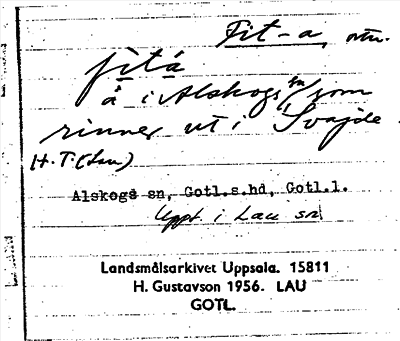 Fit-a, ortn.
fitá
å i Alskogs sn / som
rinner ut i Svajde
H. T. (Lau)
Alskogs sn, Gotl.s.hd, Gotl.l.
Uppt. i Lau sn
Landsmålsarkivet Uppsala. 15811
H. Gustavson 1956. LAU
GOTL.